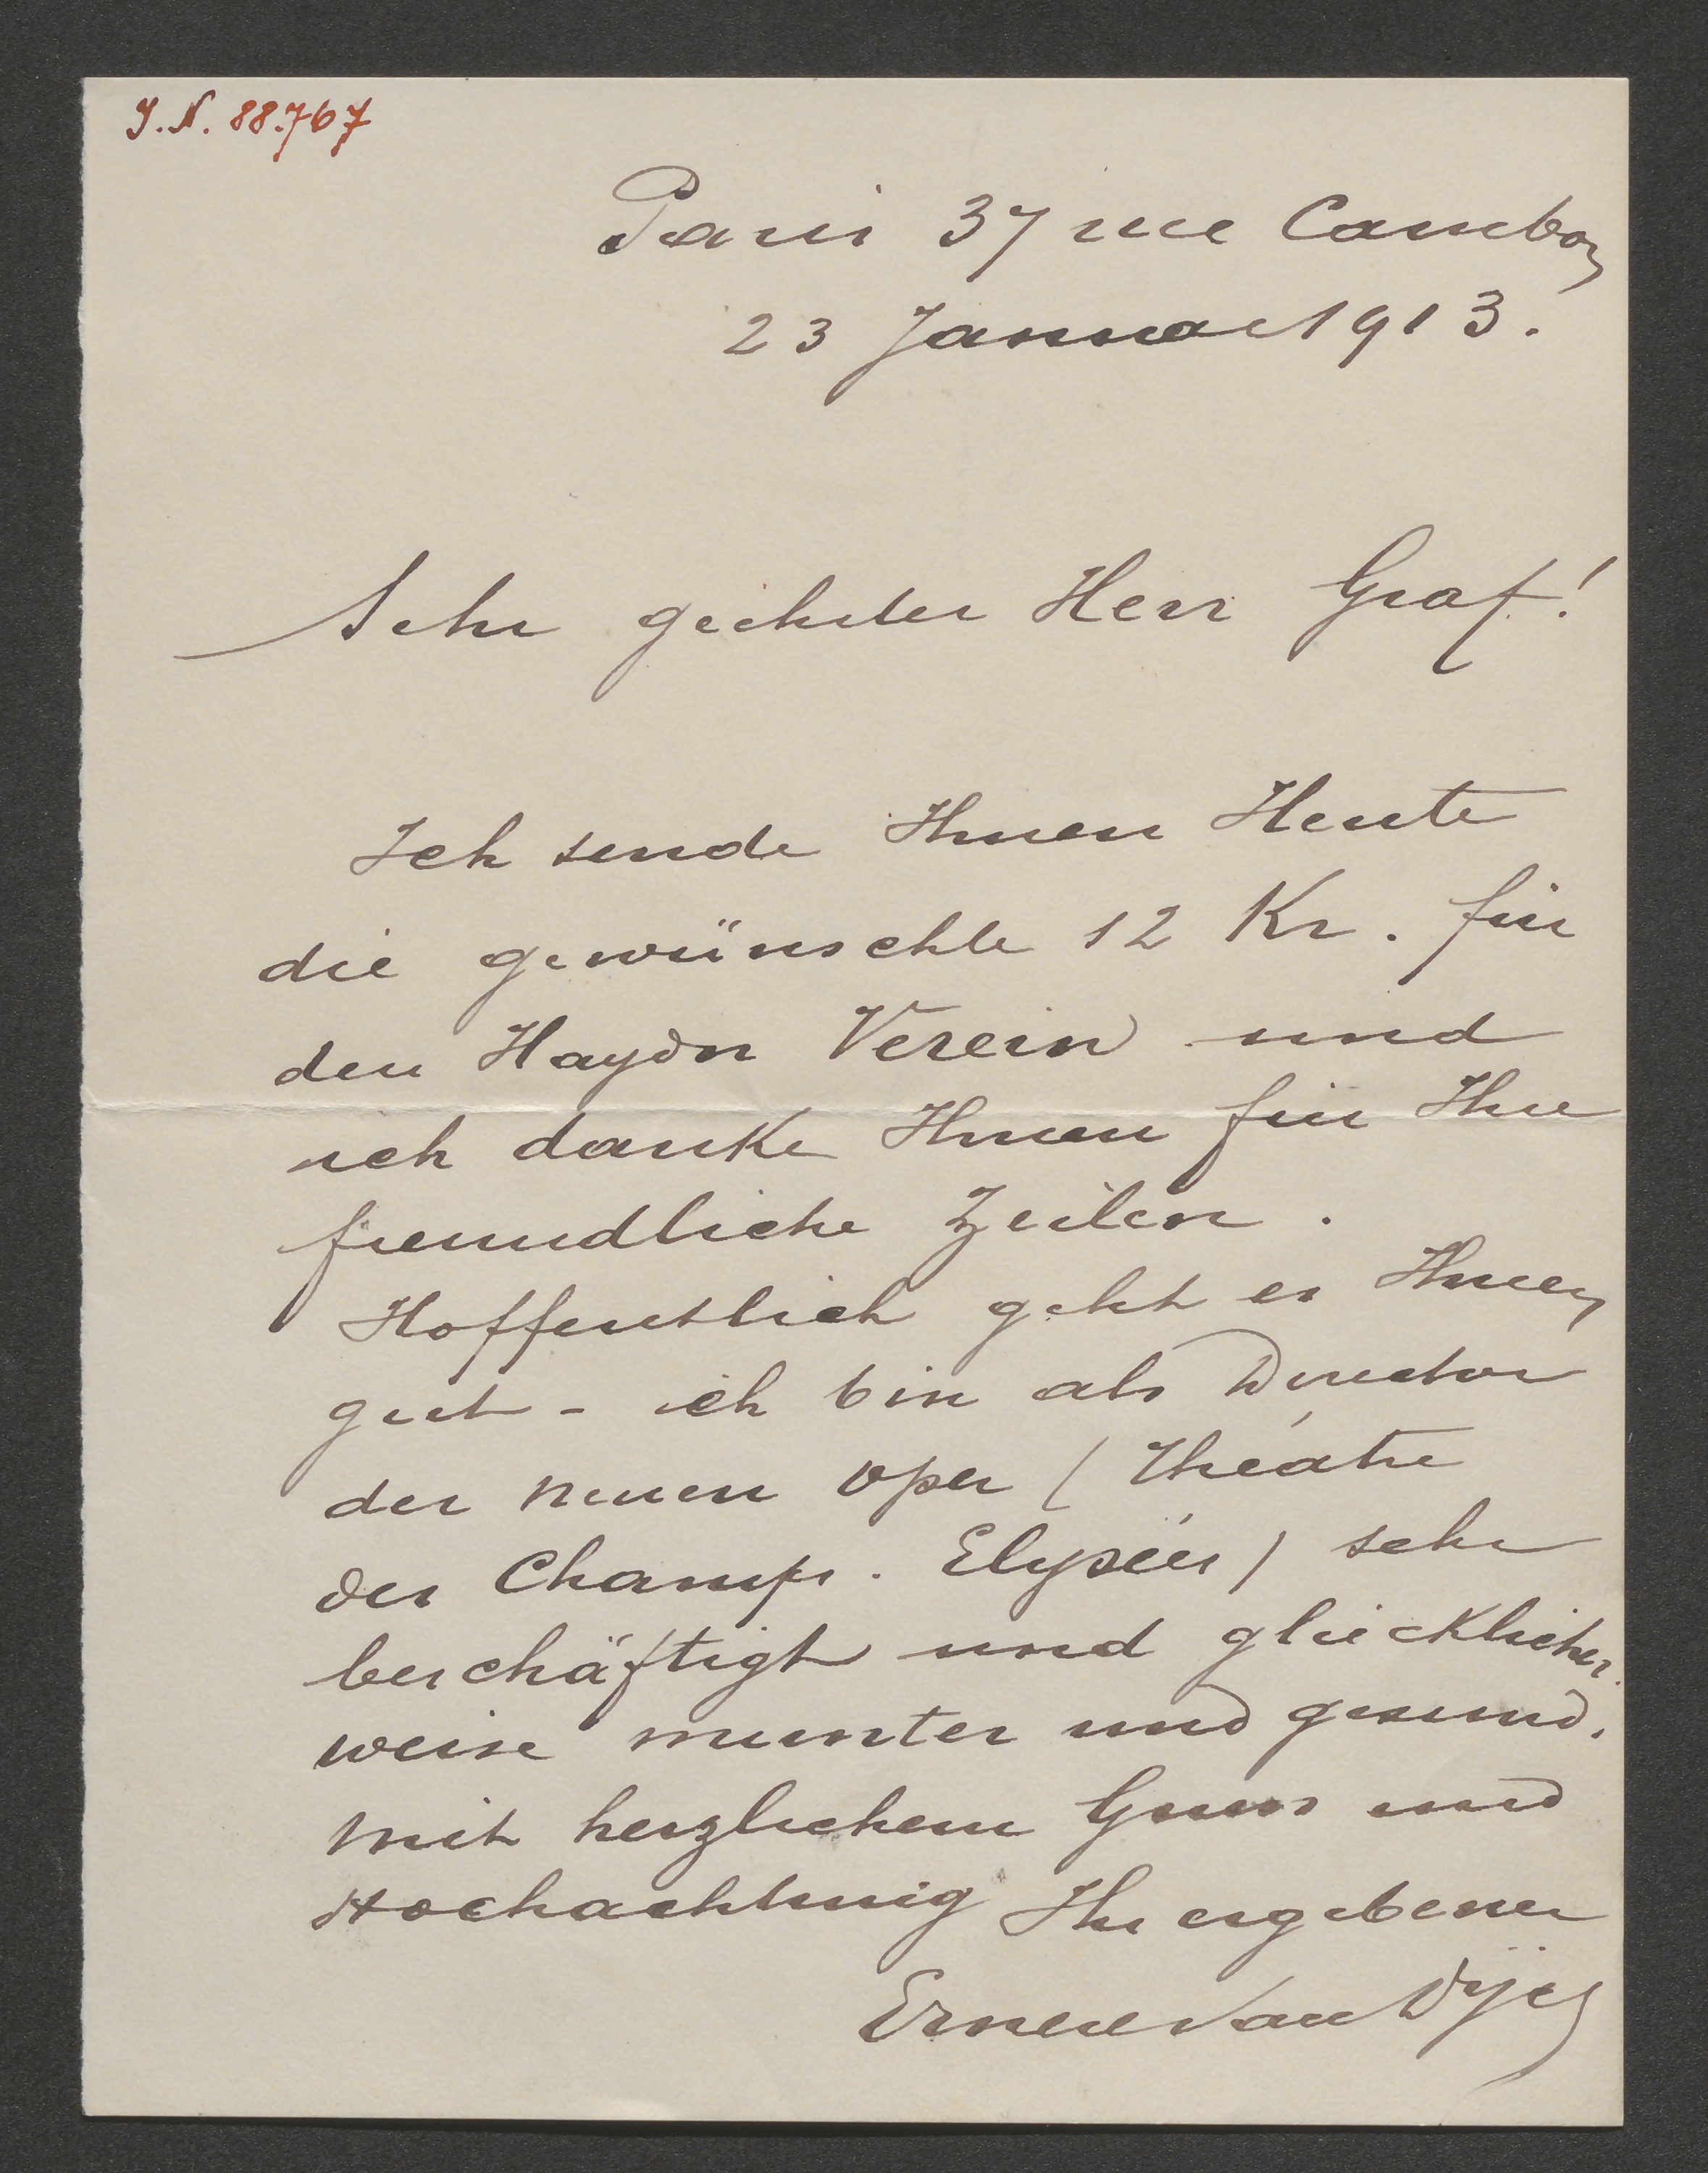 J.N. 88.767
Paris 37 rue Cambon
23 Januar 1913.
Sehr geehrter Herr Graf!
Ich sende Ihnen Heute
die gewünschte 12 Kr. für
den Haydn Verein und
ich danke Ihnen für Ihre
freundliche Zeilen.
Hoffentlich geht es Ihnen
gut - ich bin als Director
der neuen Oper (Théatre
des Champs. Elysées) sehr
beschäftigt und glücklicher
weise munter und gesund.
Mit herzlichem Gruss und
Hochachtung Ihr ergebener
Ernest van Dyck